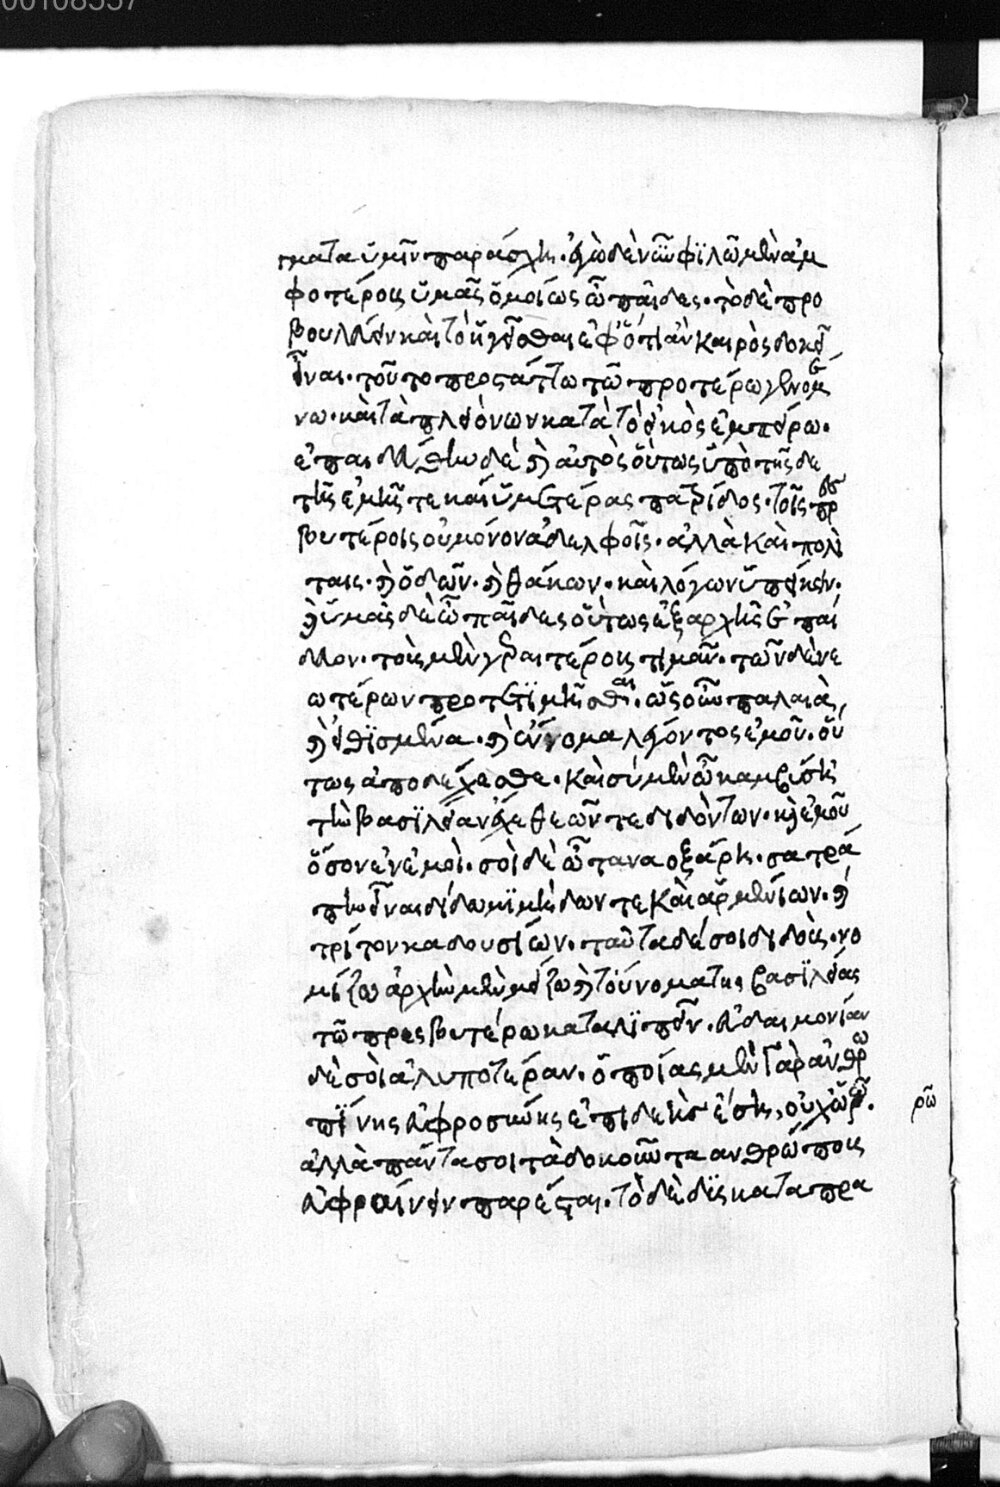 00108557
πματα ὑμῖν παράσχῃ. ἐγὼ δὲ νῦν φϊλῶ μὲν ἀμ
φοτέροις ὑμᾶς ὁμοίως ὦ παῖδες. τὸ δὲ προ
βουλεύειν καὶ τὸ ἡγεῖσθαι ἐφ' ὅ τι ἂν καιρὸς δοκεῖ
εἶναι. τοῦτο προστάττω τῶ προτέρω γενομέ
νω. καὶ τὰ πλειόνων κατὰ τὸ εἰκὸς ἐμπείρω.
ἐπαιδεύθην δὲ καὶ αὐτὸς οὕτως ὑπὸ τῆσδε
τῆς ἐμῆς τε καὶ ὑμετέρας πατρίδος. τοῖς πρεσ
βυτέροις οὐ μόνον ἀδελφοῖς. ἀλλὰ καὶ πολί
ταις. καὶ ὁδῶν. καὶ θάκων. καὶ λόγων ὑπείκειν.
καὶ ὑμᾶς δὲ ὦ παῖδες οὕτως ἐξαρχῆς ἐπαί
δευον. τοὺς μὲν γεραιτέροις τιμᾶν. τῶν δὲ νε
ωτέρων προτετϊμῆσθαι. ὡς οὖν παλαιὰ,
καὶ εἰθϊσμένα. καὶ ἔννομα λέγοντος ἐμοῦ. οὕ
τως ἀποδέχεσθε. καὶ σὺ μὲν ὦ καμβύση
τὴν βασϊλείαν ἔχε θεῶν τε διδόντων. καὶ ἐμοῦ
ὅσον ἐν ἐμοί. σοὶ δὲ ὦ ταναοξάρη. σατρά
πην εἶναι δίδωμϊ μήδων τε καὶ ἀρμενίων. καὶ
τρίτον καδουσίων. ταῦτα δέ σοι διδοὺς. νο
μίζω ἀρχὴν μὲν μείζω καὶ τοὔνομα τῆς βασϊλείας
τῶ πρεσβυτέρω καταλϊπεῖν. εὐδαιμονίαν
δὲ σοὶ ἀλυποτέραν. ὁποίας μὲν γὰρ ἀνθρω
πΐνης εὐφροσύνης ἐπιδεὴς ἔσῃ, οὐχ ὁρῶ.
ρῶ
ἀλλὰ πάντα σοι τὰ δοκοῦντα ανθρώποις
εὐφραίνειν παρέσται. τὸ δὲ δϊς καταπρα